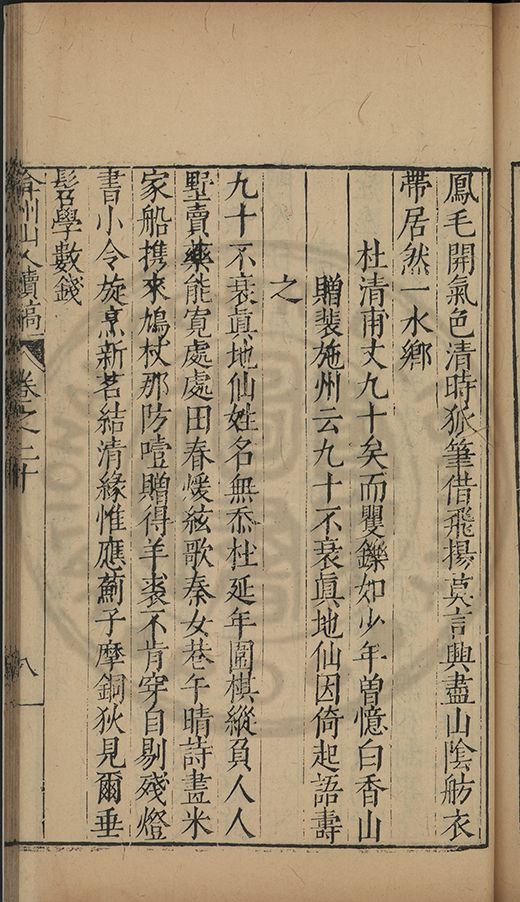 鳳毛開氣色清時狐筆借飛揚莫言興盡山陰舫衣
帶居然一水鄉
杜清甫丈九十矣而矍鑠如少年曾憶白香山
贈裴施州云九十不衰眞地仙因倚起語壽
之
九十不衰眞地仙姓名無忝杜延年圍棋縱負人人
墅賣藥能寛處處田春煖絃歌秦女巷午晴詩畫米
家船携來鳩杖那防噎贈得羊裘不肯穿自剔殘燈
書小令旋烹新茗結清緣惟應薊子摩銅狄見爾垂
髫學數錢
弇州山人續稿 卷之二十 八